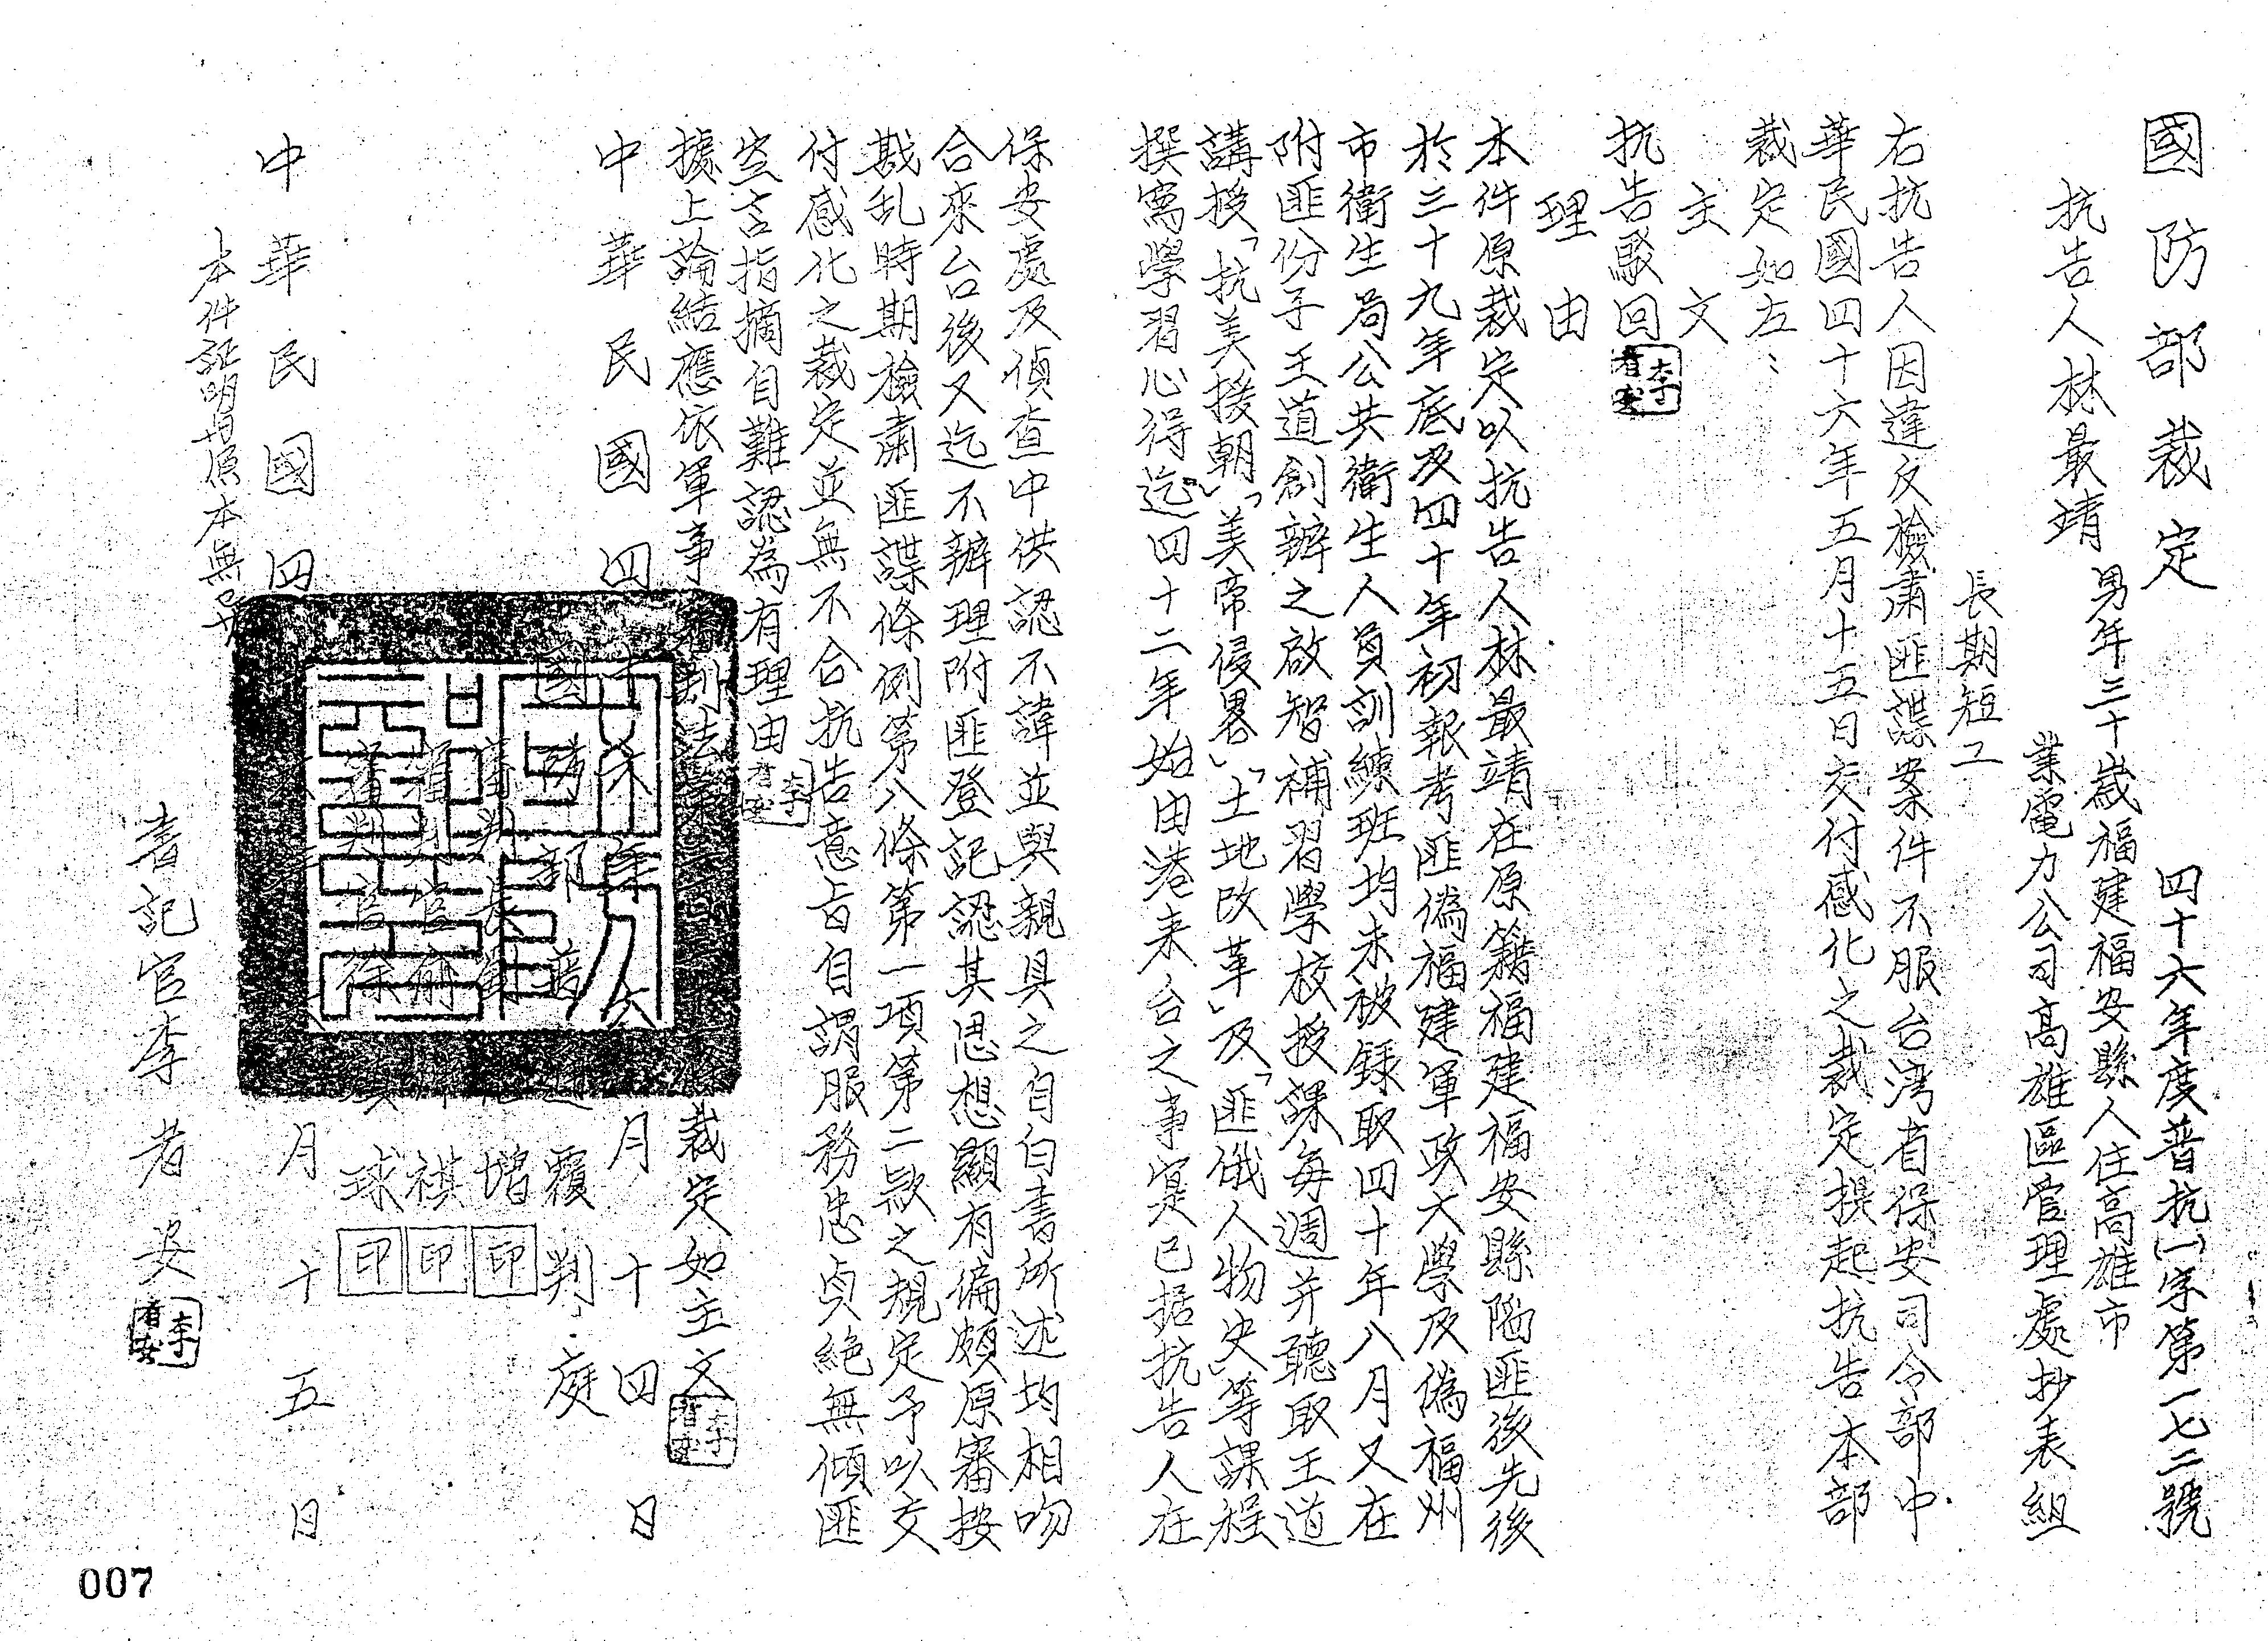 國防部裁定
四十六年度普抗(一)字第一七三號
抗告人林最靖
男年三十歲福建福安縣人住高雄市
業電力公司高雄區管理處抄表組
長期短工
右抗告人因違反檢肅匪諜案件不服台湾省保安司令部中
華民國四十六年五月十五日交付感化之裁定提起抗告本部
裁定如左：
主文
抗告駁回
理由
本件原裁定以抗告人林最靖在原籍福建福安縣陷匪後先後
於三十九年底及四十年初報考匪偽福建軍政大學及偽福州
市衛生局公共衛生人員訓練班均未被録取四十年八月又在
附匪份子王道創辦之啟智補習學校授課每週并聽取王道
講授「抗美援朝」「美帝侵畧」「土地改革」及「匪俄人物史」等課程
撰寫學習心得迄四十二年始由港来台之事寔已据抗告人在
保安處及偵查中供認不諱並與親具之自白書所述均相吻
合來台後又迄不辦理附匪登記認其思想顯有偏頗原審按
戡乱時期檢肅匪諜條例第八條第一項第二款之規定予以交
付感化之裁定並無不合抗告意旨自謂服務忠貞絕無傾匪
空言指摘自難認為有理由
據上論結應依軍事審判法 裁定如主文
中華民國四十六年 月十四日
國防部普通覆判庭
審判長劉 增
審判官俞 祺
審判官徐 球
本件証明與原本無異
中華民國四 月十五日
書記官李者安
李者安
印
印
印
007